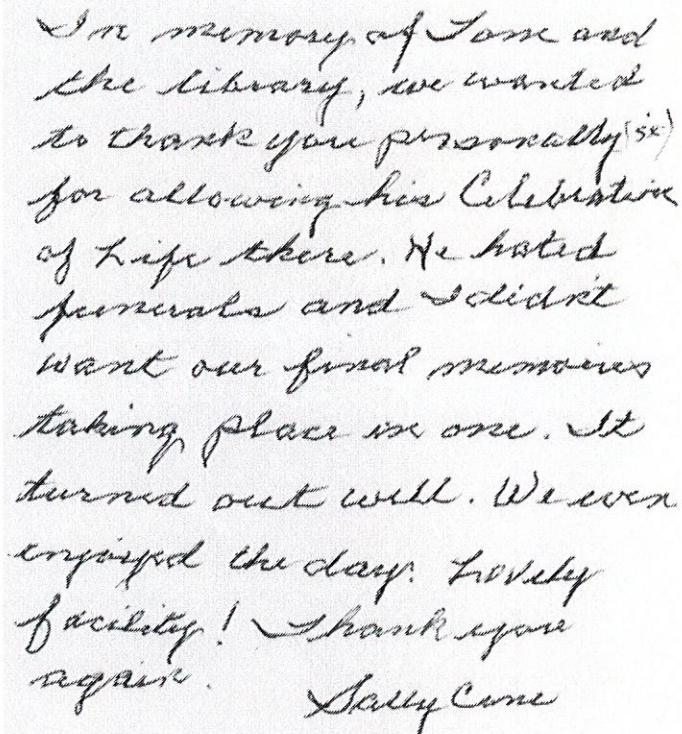 In memory of Tom and
the library, we wanted
to thank you personally (sx)
for allowing his Celebration
of Life there. He hated
funerals and I didn't
want our final memories
taking place in one. It
turned out well. We even
enjoyed the day. Lovely
facility! Thank you
again.
Sally